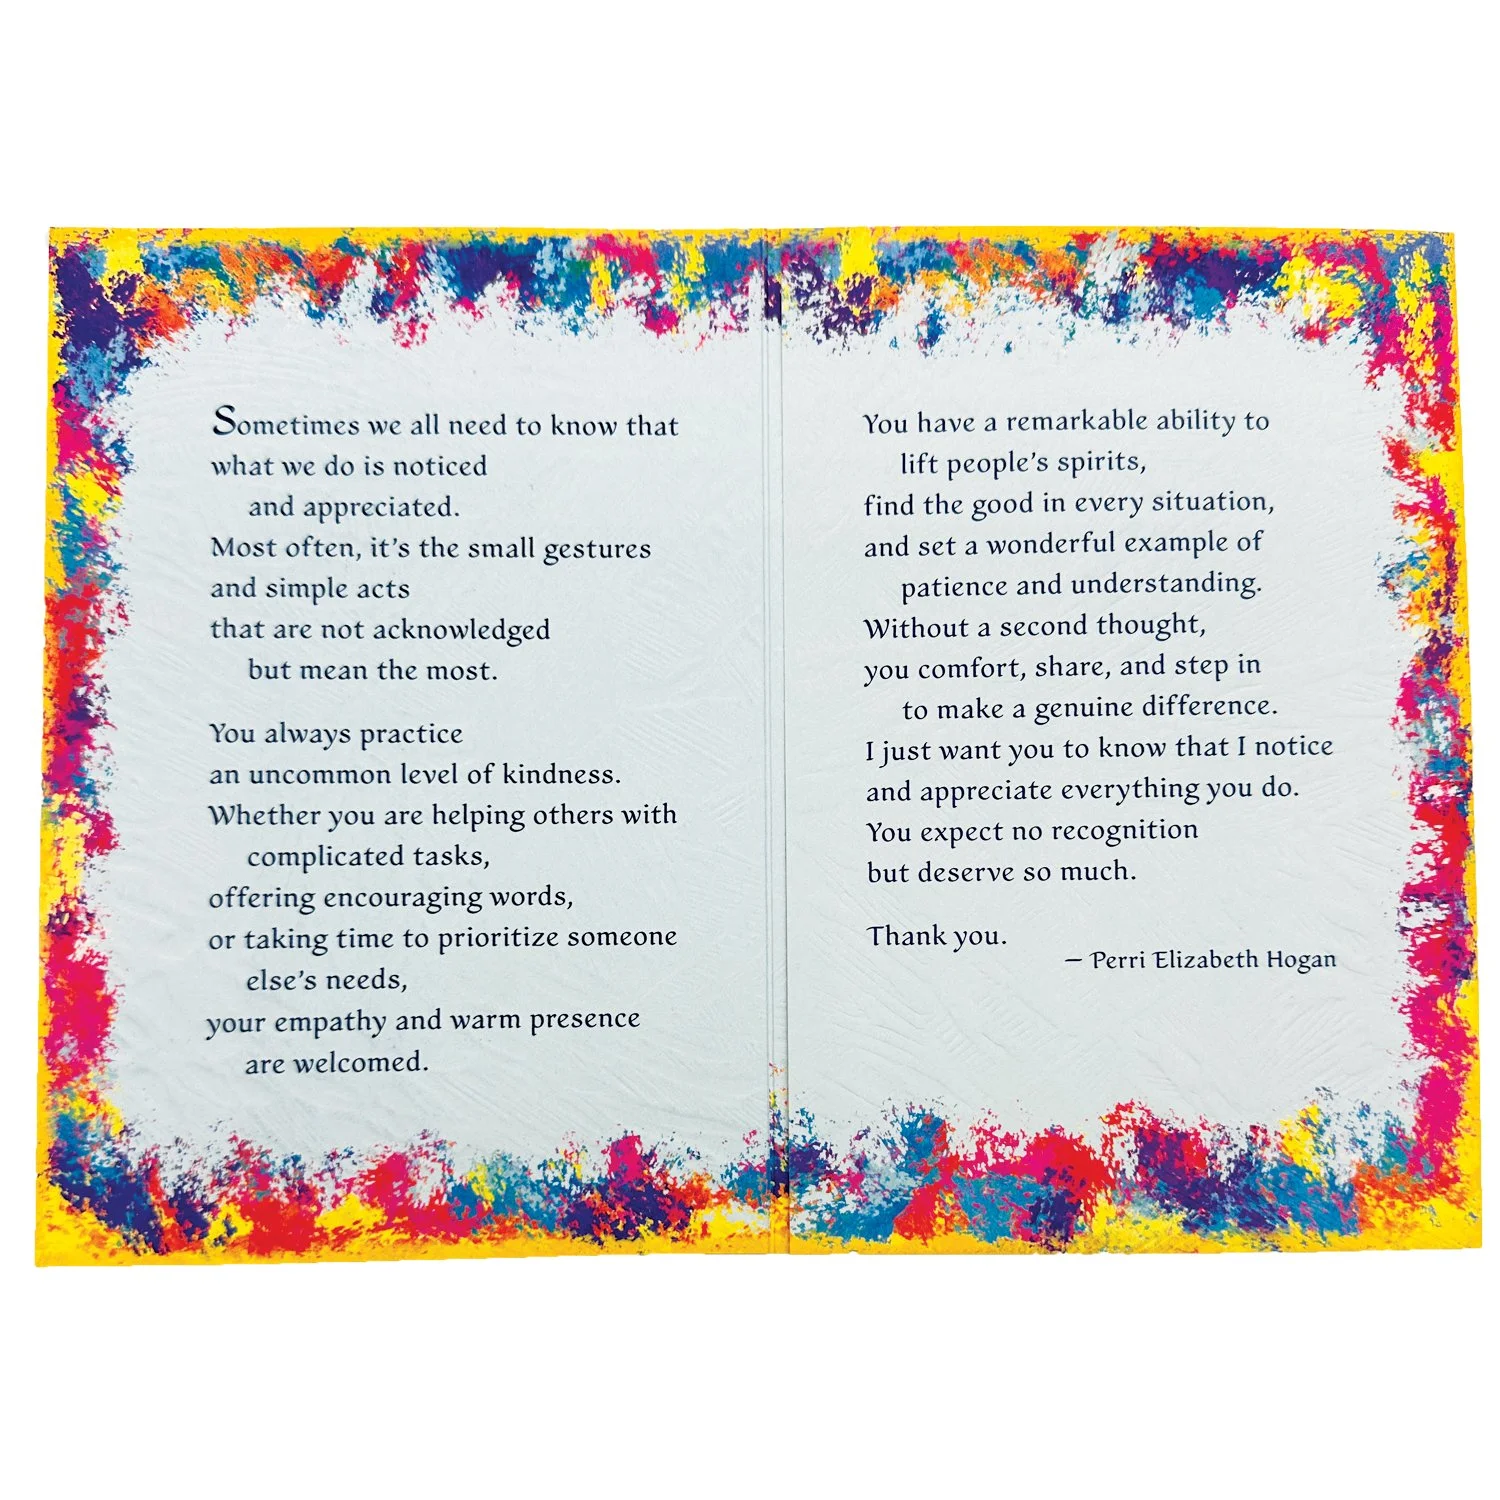 Sometimes we all need to know that
what we do is noticed
and appreciated.
Most often, it's the small gestures
and simple acts
that are not acknowledged
but mean the most.
You always practice
an uncommon level of kindness.
Whether you are helping others with
complicated tasks,
offering encouraging words,
or taking time to prioritize someone
else's needs,
your empathy and warm presence
are welcomed.
You have a remarkable ability to
lift people's spirits,
find the good in every situation,
and set a wonderful example of
patience and understanding.
Without a second thought,
you comfort, share, and step in
to make a genuine difference.
I just want you to know that I notice
and appreciate everything you do.
You expect no recognition
but deserve so much.
Thank you.
— Perri Elizabeth Hogan